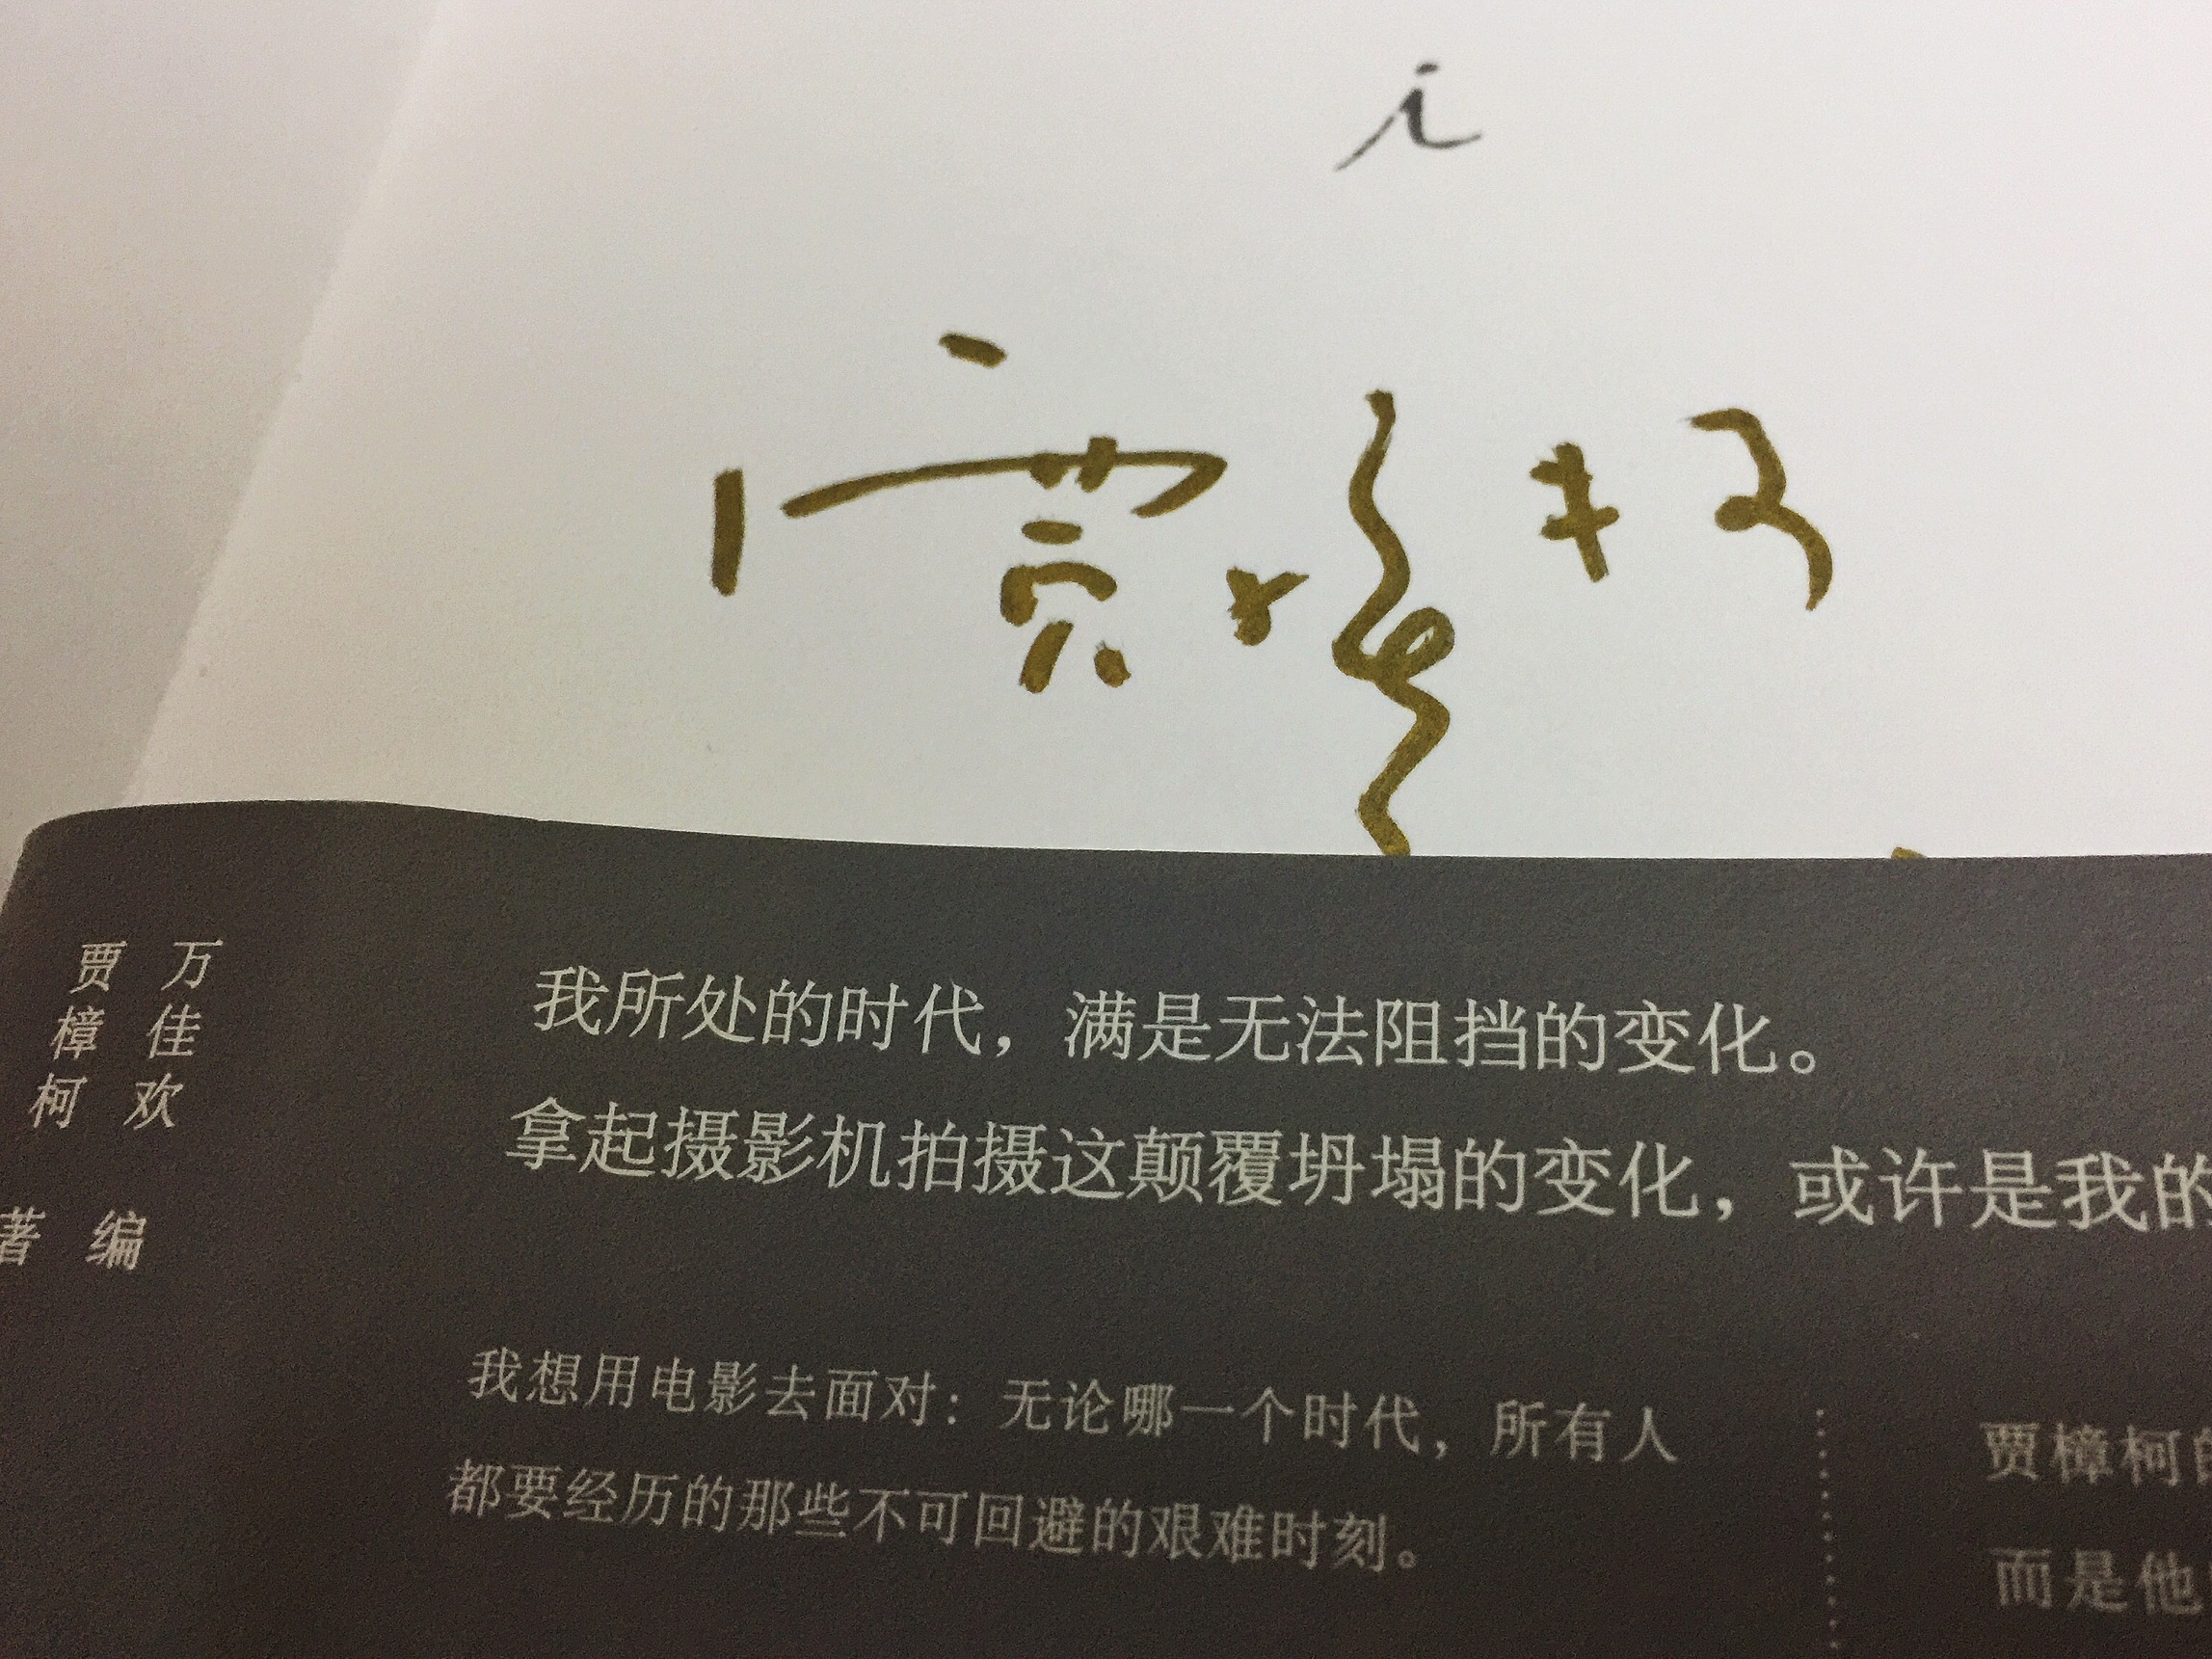 i
贾樟柯 著
万佳欢 编
我所处的时代，满是无法阻挡的变化。
拿起摄影机拍摄这颠覆坍塌的变化，或许是我的
我想用电影去面对：无论哪一个时代，所有人
都要经历的那些不可回避的艰难时刻。
贾樟柯的
而是他